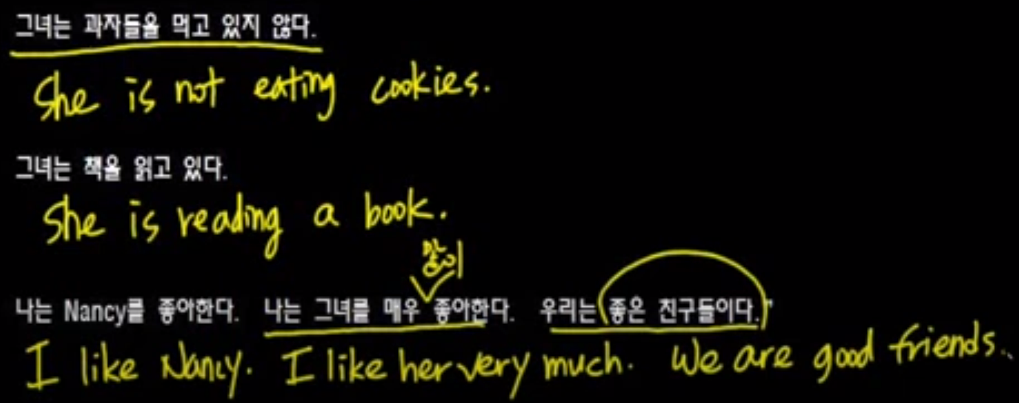 그녀는 과자들을 먹고 있지 않다.
She is not eating cookies.
그녀는 책을 읽고 있다.
She is reading a book.
많이
나는 Nancy를 좋아한다. 나는 그녀를 매우 좋아한다. 우리는 좋은 친구들이다."
I like Nancy. I like her very much. We are good friends..